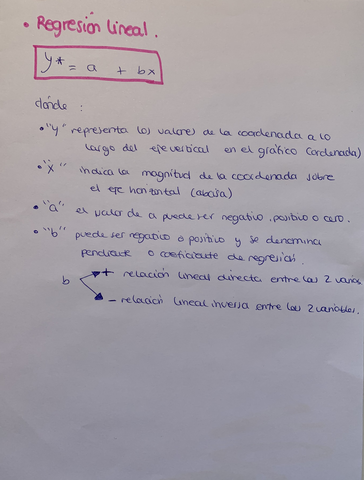 • Regresión lineal.
y* = a + bx
dónde :
• "y" representa los valores de la coordenada a lo
largo del eje vertical en el gráfico (ordenada)
• "x" indica la magnitud de la coordenada sobre
el eje horizontal (abcisa)
• "a" el valor de a puede ser negativo, positivo o cero.
• "b" puede ser negativo o positivo y se denomina
pendiente o coeficiente de regresión.
b + relación lineal directa entre las 2 variables
- relación lineal inversa entre las 2 variables.